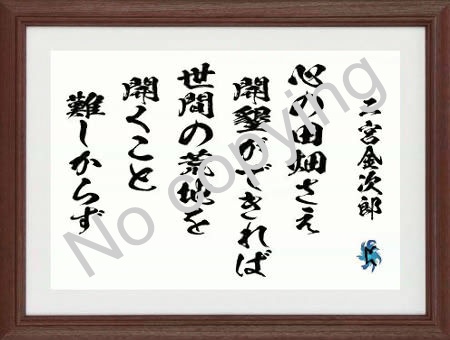 二宮金次郎
心の田畑さえ
開墾ができれば
世間の荒地を
開くこと
難しからず
No copying